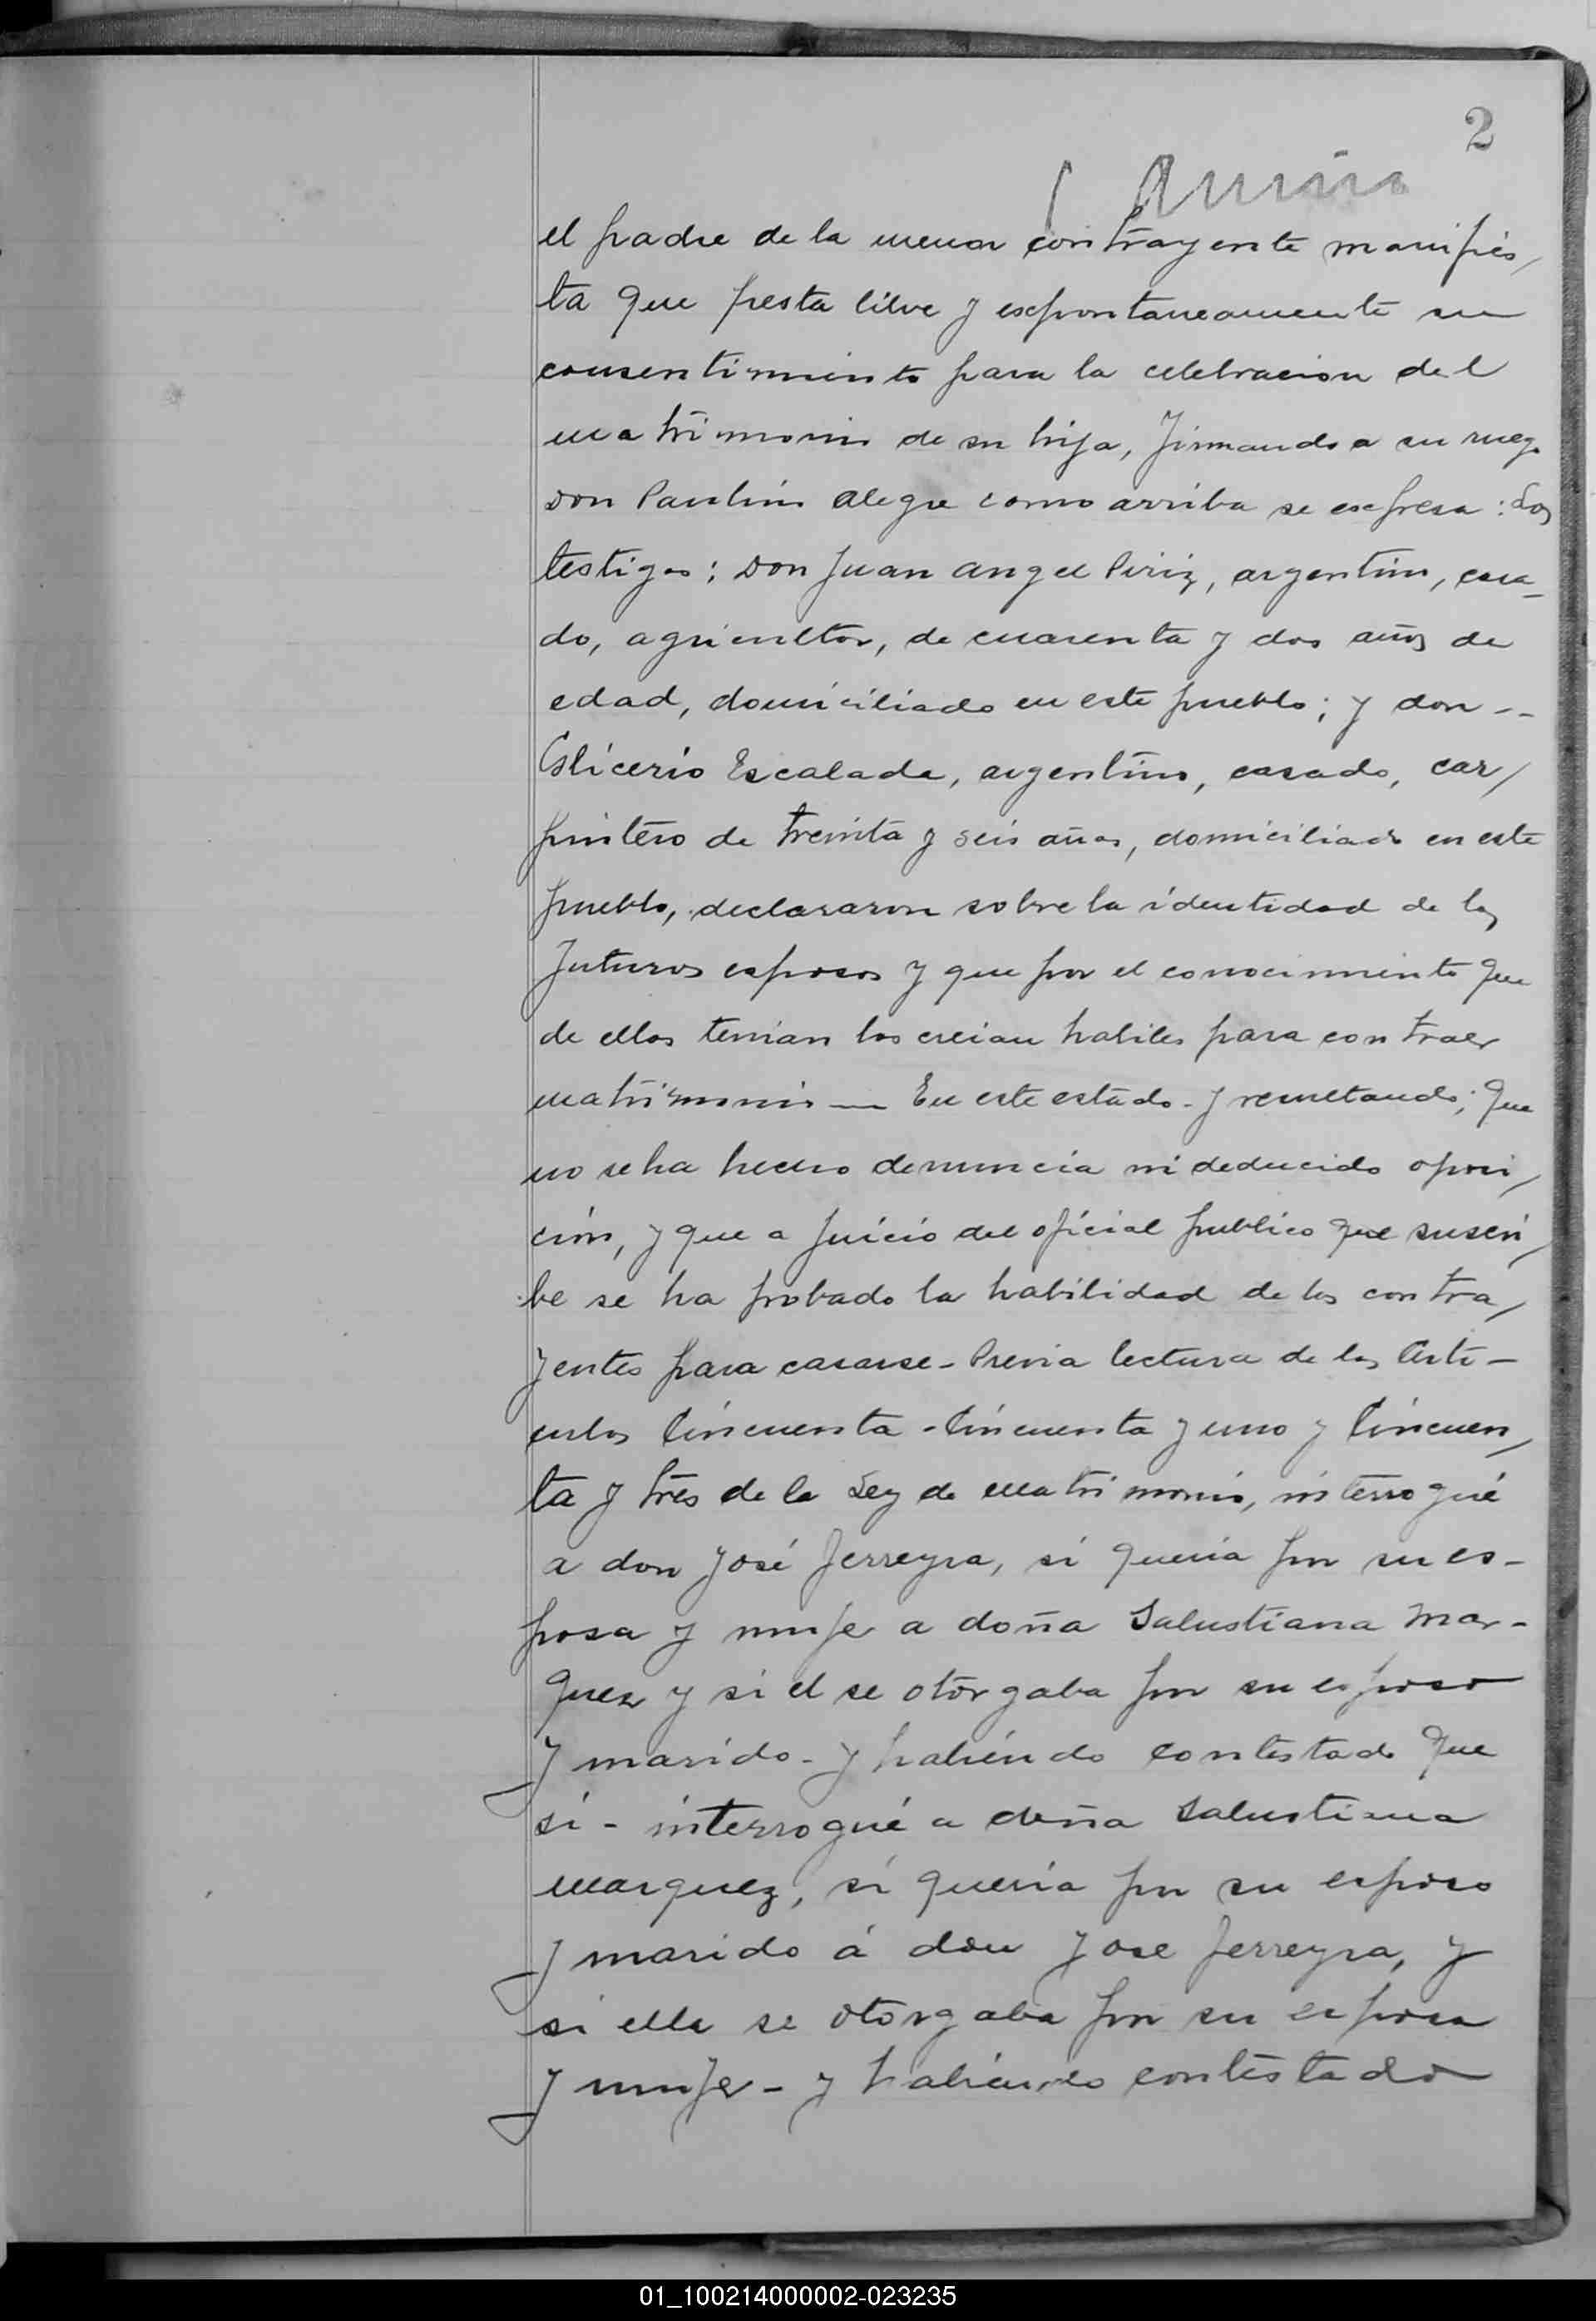 2
el padre de la menor contrayente manifies/
ta que presta libre y expontaneamente su
consentimiento para la celebracion del
matrimonio de su hija, firmando a su ruego
don Paulino Alegre como arriba se expresa: Los
testigos; don Juan Angel Piriz, argentino, casa-
do, agricultor, de cuarenta y dos años de
edad, domiciliado en este pueblo; y don --
Glicerio Escalada, argentino, casado, car/
pintero de treinta y seis años, domiciliado en este
pueblo, declararon sobre la identidad de los
futuros esposos y que por el conocimiento que
de ellos tenian los creian habiles para contraer
matrimonio — En este estado - y resultando; que
no se ha hecho denuncia ni deducido oposi/
ción, y que a juicio del oficial publico que suscri/
be se ha probado la habilidad de los contra/
yentes para casarse - Previa lectura de los Arti-
culos Cincuenta - Cincuenta y uno y Cincuen/
ta y tres de la Ley de matrimonio, interrogué
a don José Ferreyra, si queria por su es-
posa y mujer a doña Salustiana Mar-
quez y si el se otorgaba por su esposo
y marido - y habiendo contestado que
si - interrogué a doña Salustiana
Marquez, si queria por su esposo
y marido á don Jose Ferreyra, y
si ella se otorgaba por su esposa
y mujer - y habiendo contestado
01_100214000002-023235